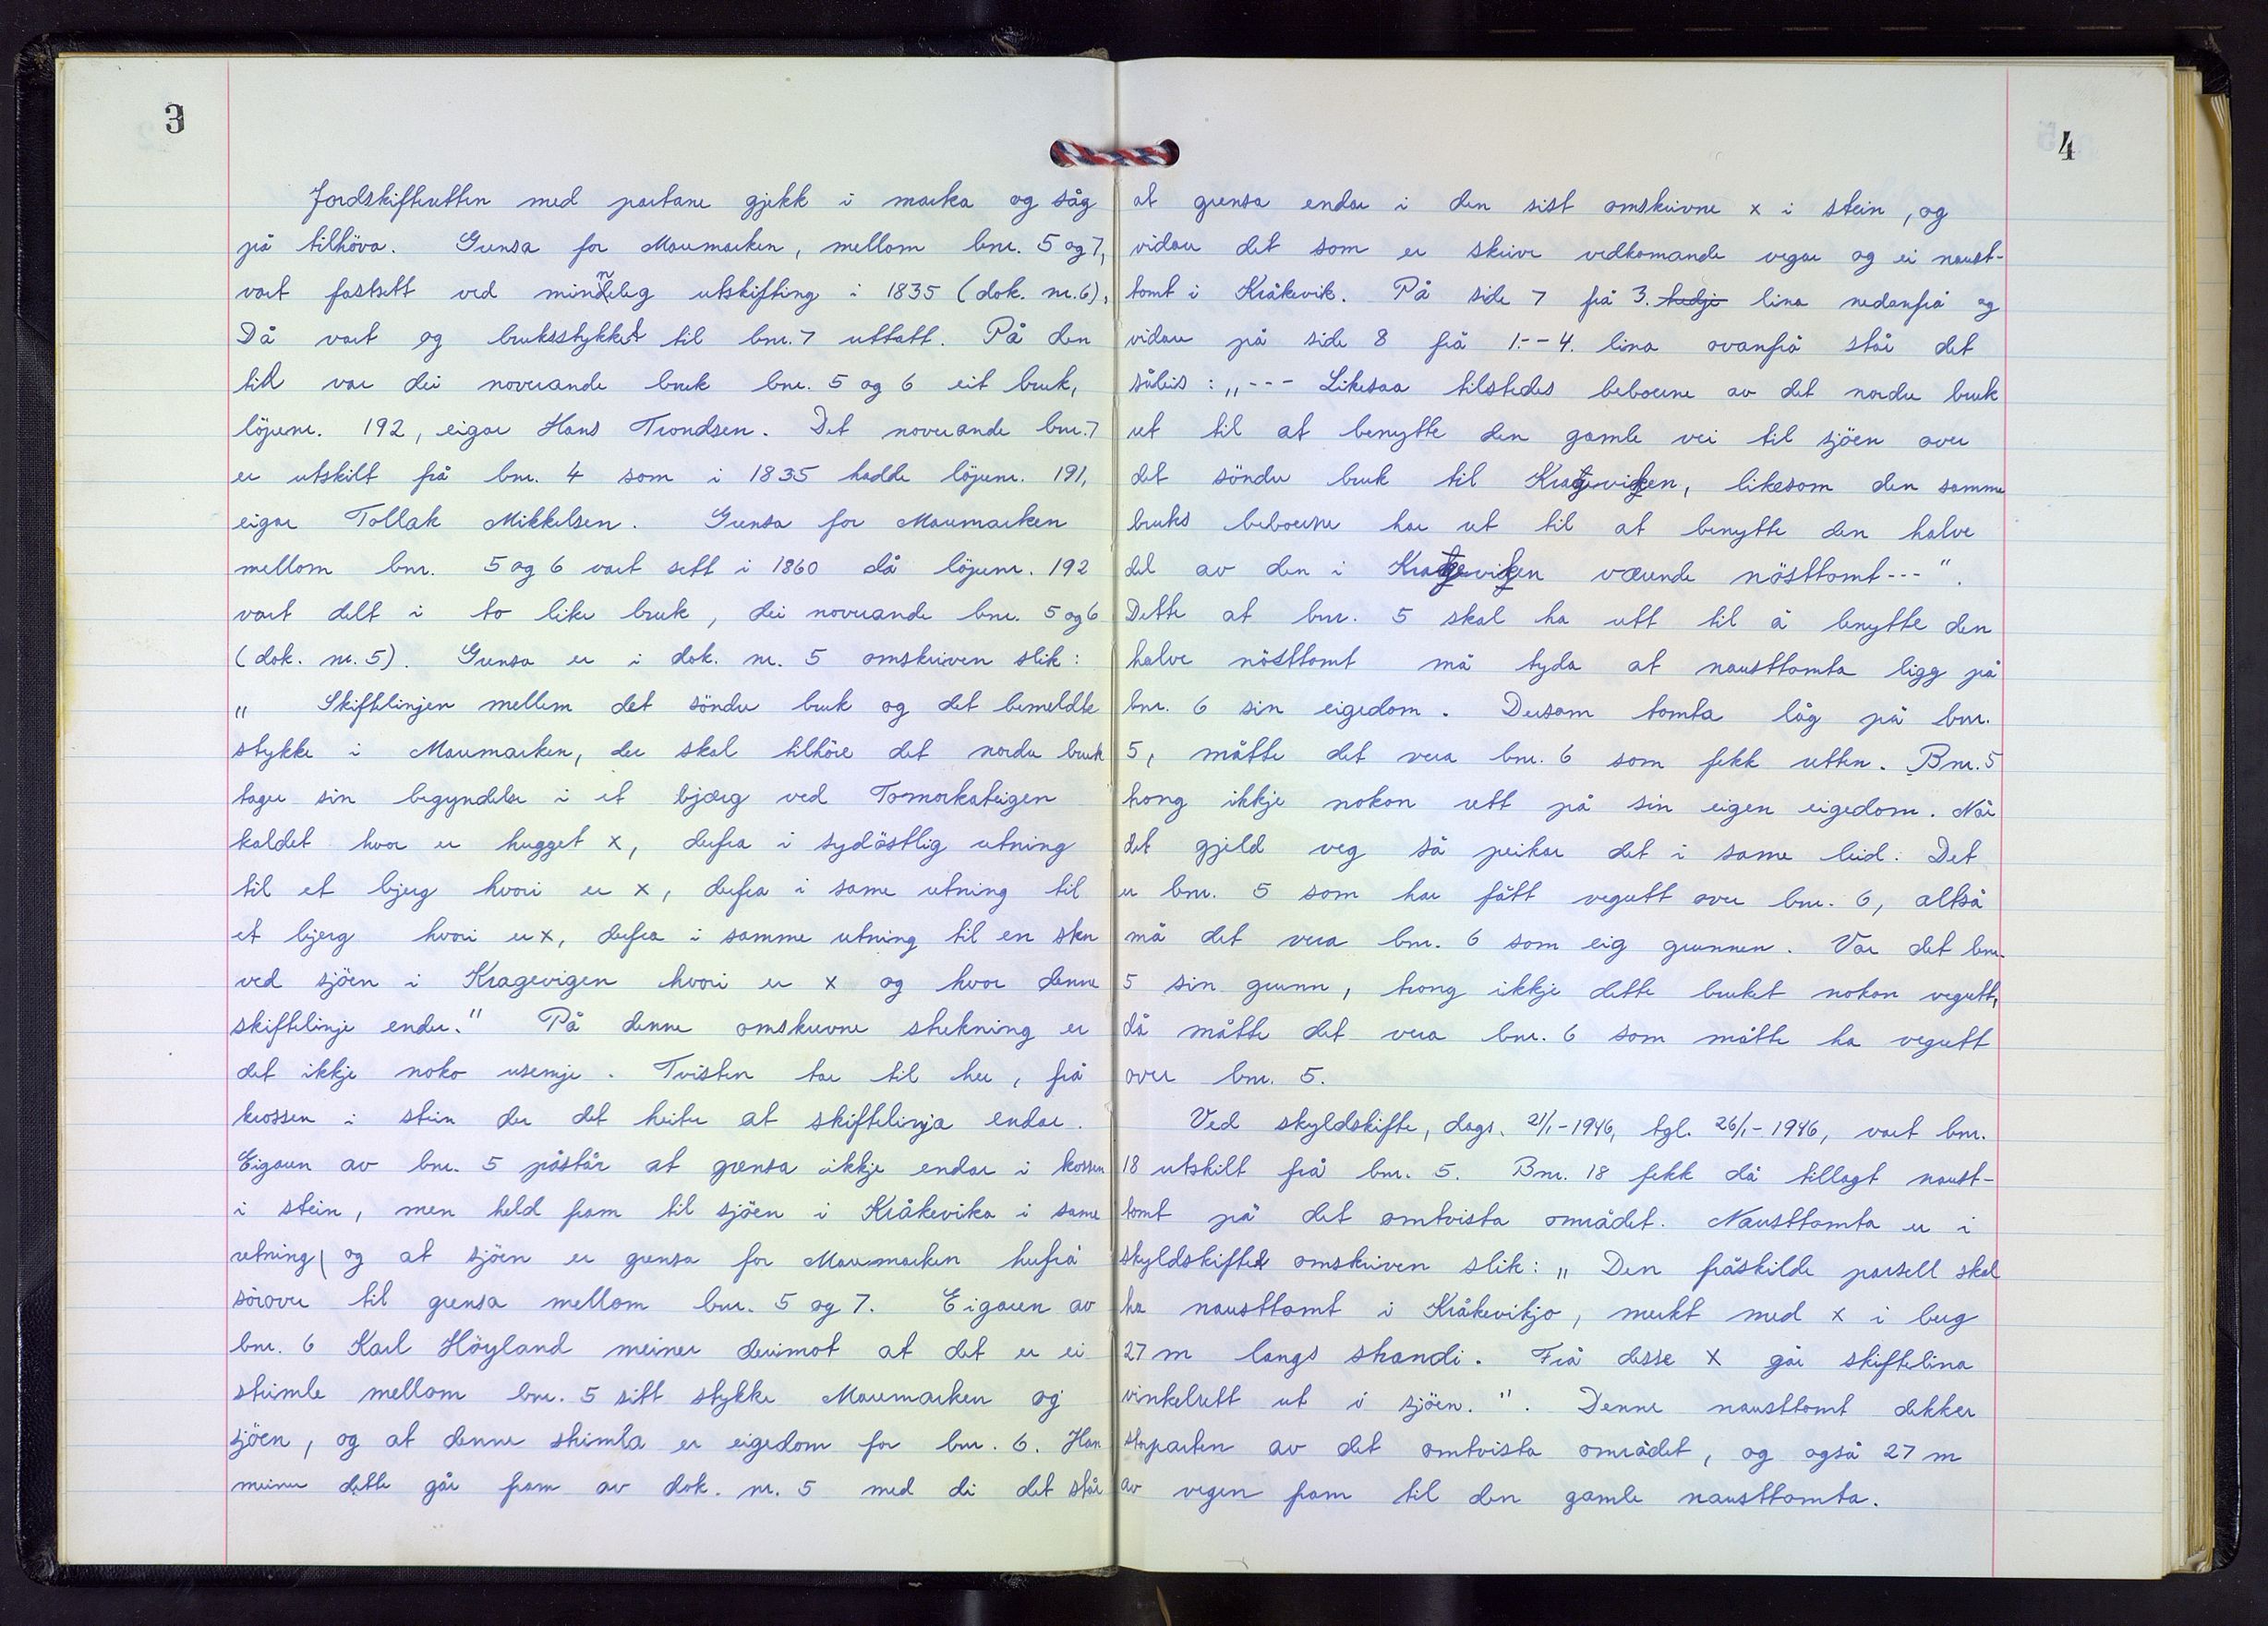 3
Jordskifteretten med partane gjekk i marka og såg
på tilhöva. Grensa for Maremarken, mellom bnr. 5 og 7,
vart fastsett ved minneleg utskifting i 1835 (dok. nr. 6),
Då vart og bruksstykket til bnr. 7 uttatt. På den
tid var dei noverande bruk bnr. 5 og 6 eit bruk,
löpenr. 192, eigar Hans Trondsen. Det noverande bnr. 7
er utskilt frå bnr. 4 som i 1835 hadde löpenr. 191,
eigar Tollak Mikkelsen. Grensa for Maremarken
mellom bnr. 5 og 6 vart sett i 1860 då löpenr. 192
vart delt i to like bruk, dei noverande bnr. 5 og 6
(dok. nr. 5). Grensa er i dok. nr. 5 omskriven slik:
„ Skiftelinjen mellem det söndre bruk og det bemeldte
stykke i Maremarken, der skal tilhöre det nordre bruk
tager sin begyndelse i et bjærg ved Tomarkateigen
kaldet hvor er hugget x, derfra i sydöstlig retning
til et bjerg hvori er x, derfra i same retning til
et bjerg hvori er x, derfra i samme retning til en sten
ved sjöen i Kragevigen hvori er x og hvor denne
skiftelinje ender." På denne omskrevne strekning er
det ikkje noko usemje. Tvisten tar til her, frå
krossen i stein der det heiter at skiftelinja endar.
Eigaren av bnr. 5 påstår at grensa ikkje endar i kossen
i stein, men held fram til sjöen i Kråkevika i same
retning, og at sjöen er grensa for Maremarken herfrå
sörover til grensa mellom bnr. 5 og 7. Eigaren av
bnr. 6 Karl Höyland meiner derimot at det er ei
strimle mellom bnr. 5 sitt stykke Maremarken og
sjöen, og at denne strimla er eigedom for bnr. 6. Han
meiner dette går fram av dok. nr. 5 med di det står
4
at grensa endar i den sist omskrivne x i stein, og
vidare det som er skrive vedkomande vegar og ei naust-
tomt i Kråkevik. På side 7 frå 3. tredje lina nedanfrå og
vidare på side 8 frå 1.--4. lina ovanfrå står det
såleis: „--- Likesaa tilstedes beboerne av det nordre bruk
ret til at benytte den gamle vei til sjöen over
det söndre bruk til Kragevigen, likesom den samme
bruks beboerne har ret til at benytte den halve
del av den i Kragevigen værende nösttomt---".
Dette at bnr. 5 skal ha rett til å benytte den
halve nösttomt må tyda at nausttomta ligg på
bnr. 6 sin eigedom. Dersom tomta låg på bnr.
5, måtte det vera bnr. 6 som fekk retten. Bnr. 5
trong ikkje nokon rett på sin eigen eigedom. Når
det gjeld veg så peikar det i same leid: Det
er bnr. 5 som har fått vegrett over bnr. 6, altså
må det vera bnr. 6 som eig grunnen. Var det bnr.
5 sin grunn, trong ikkje dette bruket nokon vegrett,
då måtte det vera bnr. 6 som måtte ha vegrett
over bnr. 5.
Ved skyldskifte, dags. 21/1-1946, tgl. 26/1-1946, vart bnr.
18 utskilt frå bnr. 5. Bnr. 18 fekk då tillagt naust-
tomt på det omtvista området. Nausttomta er i
skyldskiftet omskriven slik: „ Den fråskilde parsell skal
ha nausttomt i Kråkevikjo, merkt med x i berg
27 m langs strandi. Frå desse x går skiftelina
vinkelrett ut i sjöen.". Denne nausttomt dekker
storparten av det omtvista området, og også 27 m
av vegen fram til den gamle nausttomta.